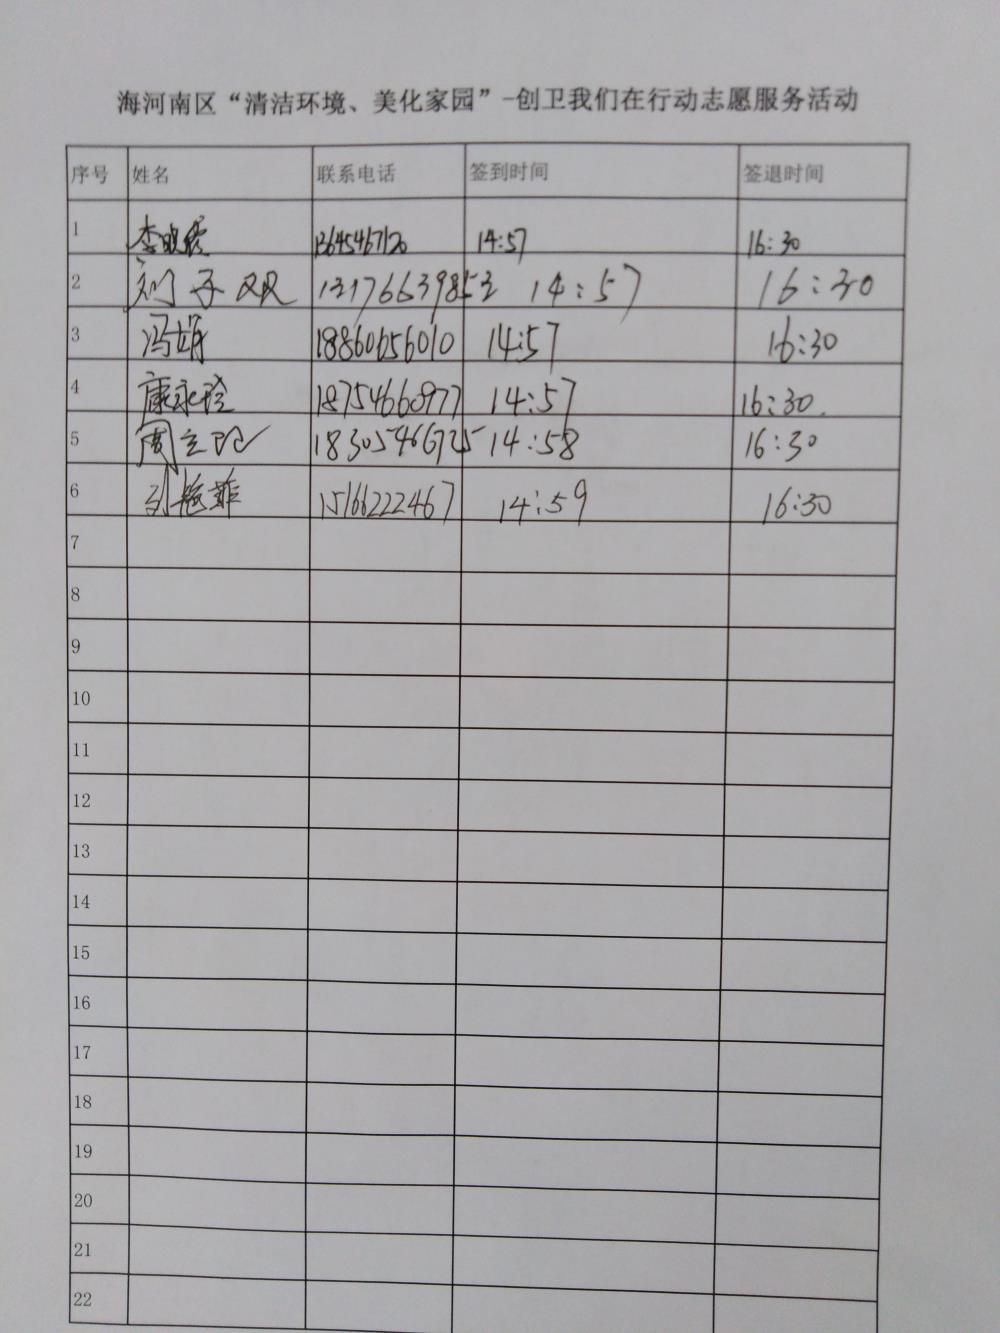 海河南区“清洁环境、美化家园”-创卫我们在行动志愿服务活动
序号 姓名 联系电话 签到时间 签退时间
1 李晓霞 13645467120 14:57 16:30
2 刘子双 13176639853 14:57 16:30
3 冯娟 18860656010 14:57 16:30
4 康永玲 18754660977 14:57 16:30.
5 周立 18305466725 14:58 16:30
6 刘艳菲 15166222467 14:59 16:30
7
8
9
10
11
12
13
14
15
16
17
18
19
20
21
22